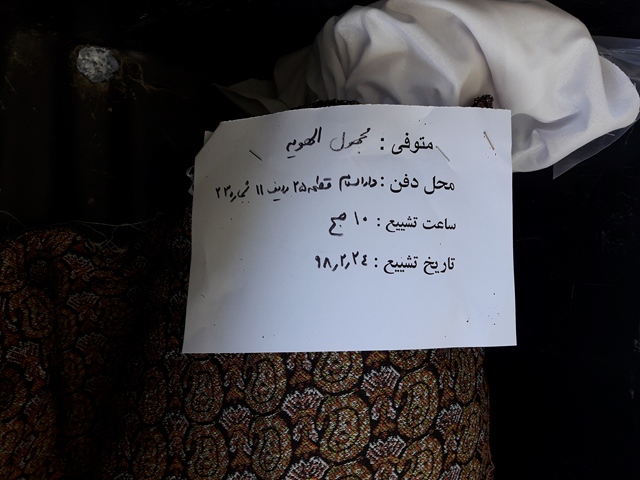 متوفی : مجهول الهویه
محل دفن : دارالسلام قطعه ۲۵ ردیف ۱۱ شماره ۲۳
ساعت تشییع : ۱۰ صبح
تاریخ تشییع : ۹۸٫۲٫۲۴